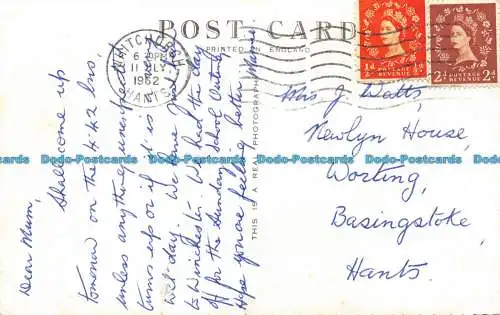 POST CARD
PRINTED IN ENGLAND
THIS IS A REAL PHOTOGRAPH
WHITCHURCH
6 PM
11 JLY
1962
HANTS
½d POSTAGE REVENUE ½d
2d POSTAGE REVENUE 2d
Dear Mum,
Shall come up
tomorrow on the 4.42 bus
unless anything unexpected
turns up or if it is
wet day. We have just
to Winchester. We had the day
off for the Sunday School Outing
Hope you are feeling better
Mrs J Watts,
Newlyn House,
Worting,
Basingstoke,
Hants.
Dodo-Postcards Dodo-Postcards Dodo-Postcards Dodo-Postcards Dodo-Postcards